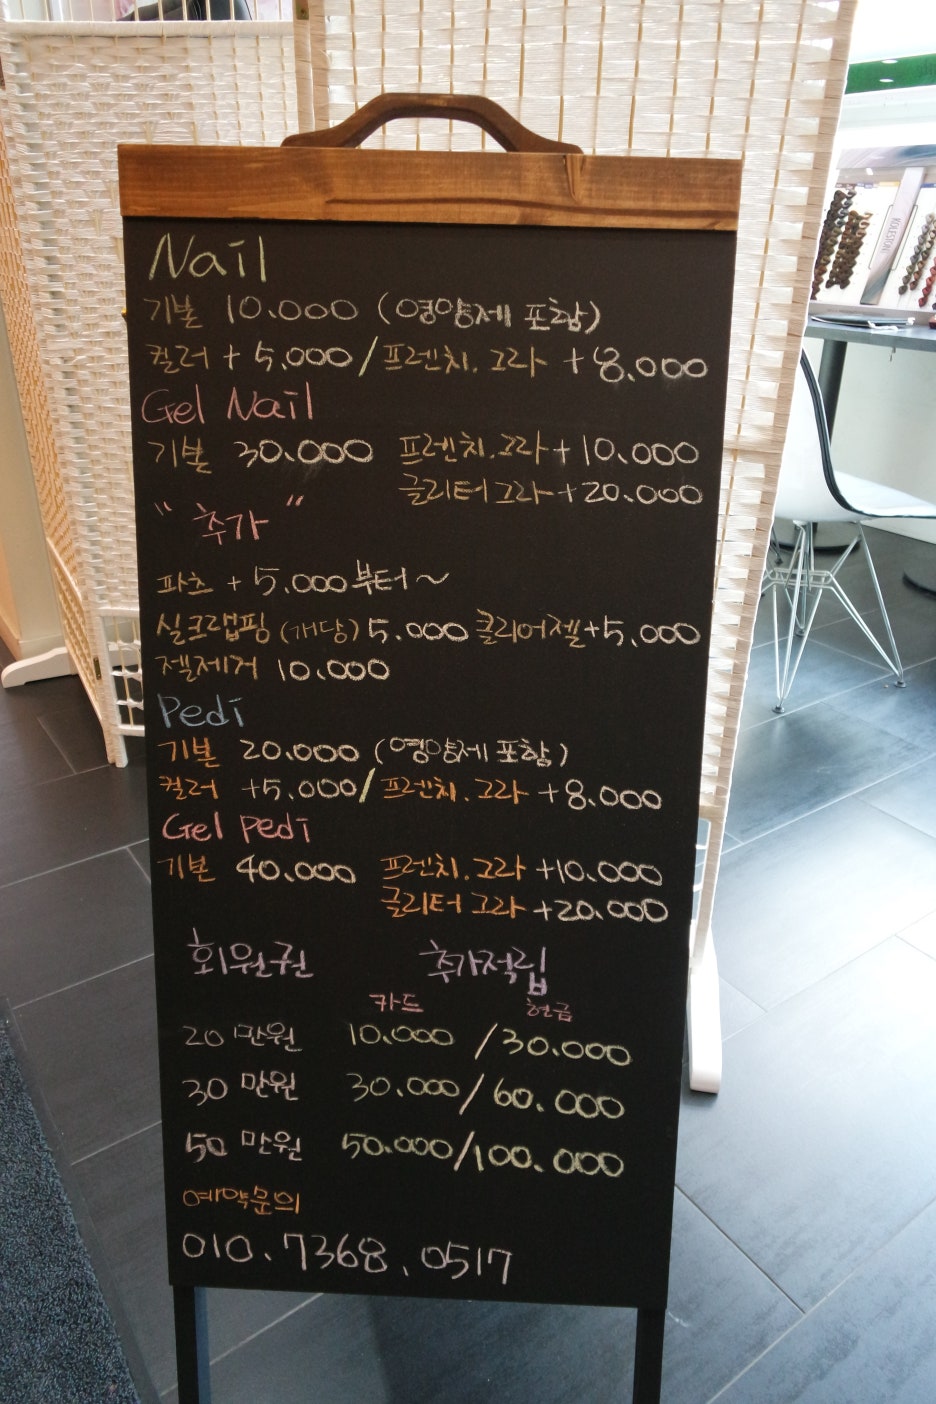 Nail
기본 10.000 (영양제 포함)
컬러 + 5.000 / 프렌치.그라 + 8.000
Gel Nail
기본 30.000 프렌치.그라 + 10.000
글리터그라 + 20.000
" 추가 "
파츠 + 5.000 부터~
실크랩핑 (개당) 5.000 클리어젤+5,000
젤제거 10.000
Pedi
기본 20.000 (영양제 포함)
컬러 +5.000 / 프렌치.그라 +8.000
Gel pedi
기본 40.000 프렌치.그라 +10.000
글리터그라 +20.000
회원권 추가적립
카드 현금
20만원 10.000 / 30.000
30만원 30.000 / 60.000
50만원 50.000 / 100.000
예약문의
010.7368.0517
KOLESTON